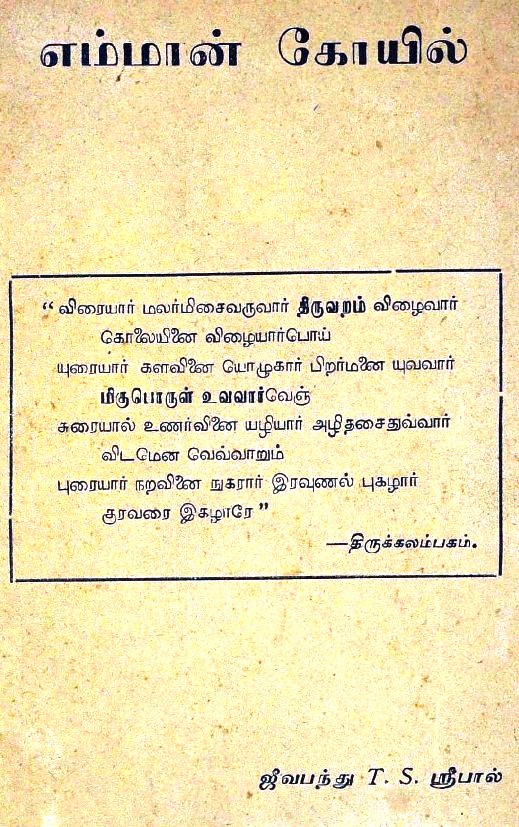 எம்மான் கோயில்
“ விரையார் மலர்மிசைவருவார் திருவறம் விழைவார்
கொலையினை விழையார்பொய்
யுரையார் களவினை யொழுகார் பிறர்மனை யுவவார்
மிகுபொருள் உவவார்வெஞ்
சுரையால் உணர்வினை யழியார் அழிதசைதுவ்வார்
விடமென வெவ்வாறும்
புரையார் நறவினை நுகரார் இரவுணல் புகழார்
குரவரை இகழாரே ”
—திருக்கலம்பகம்.
ஜீவபந்து T. S. ஸ்ரீபால்